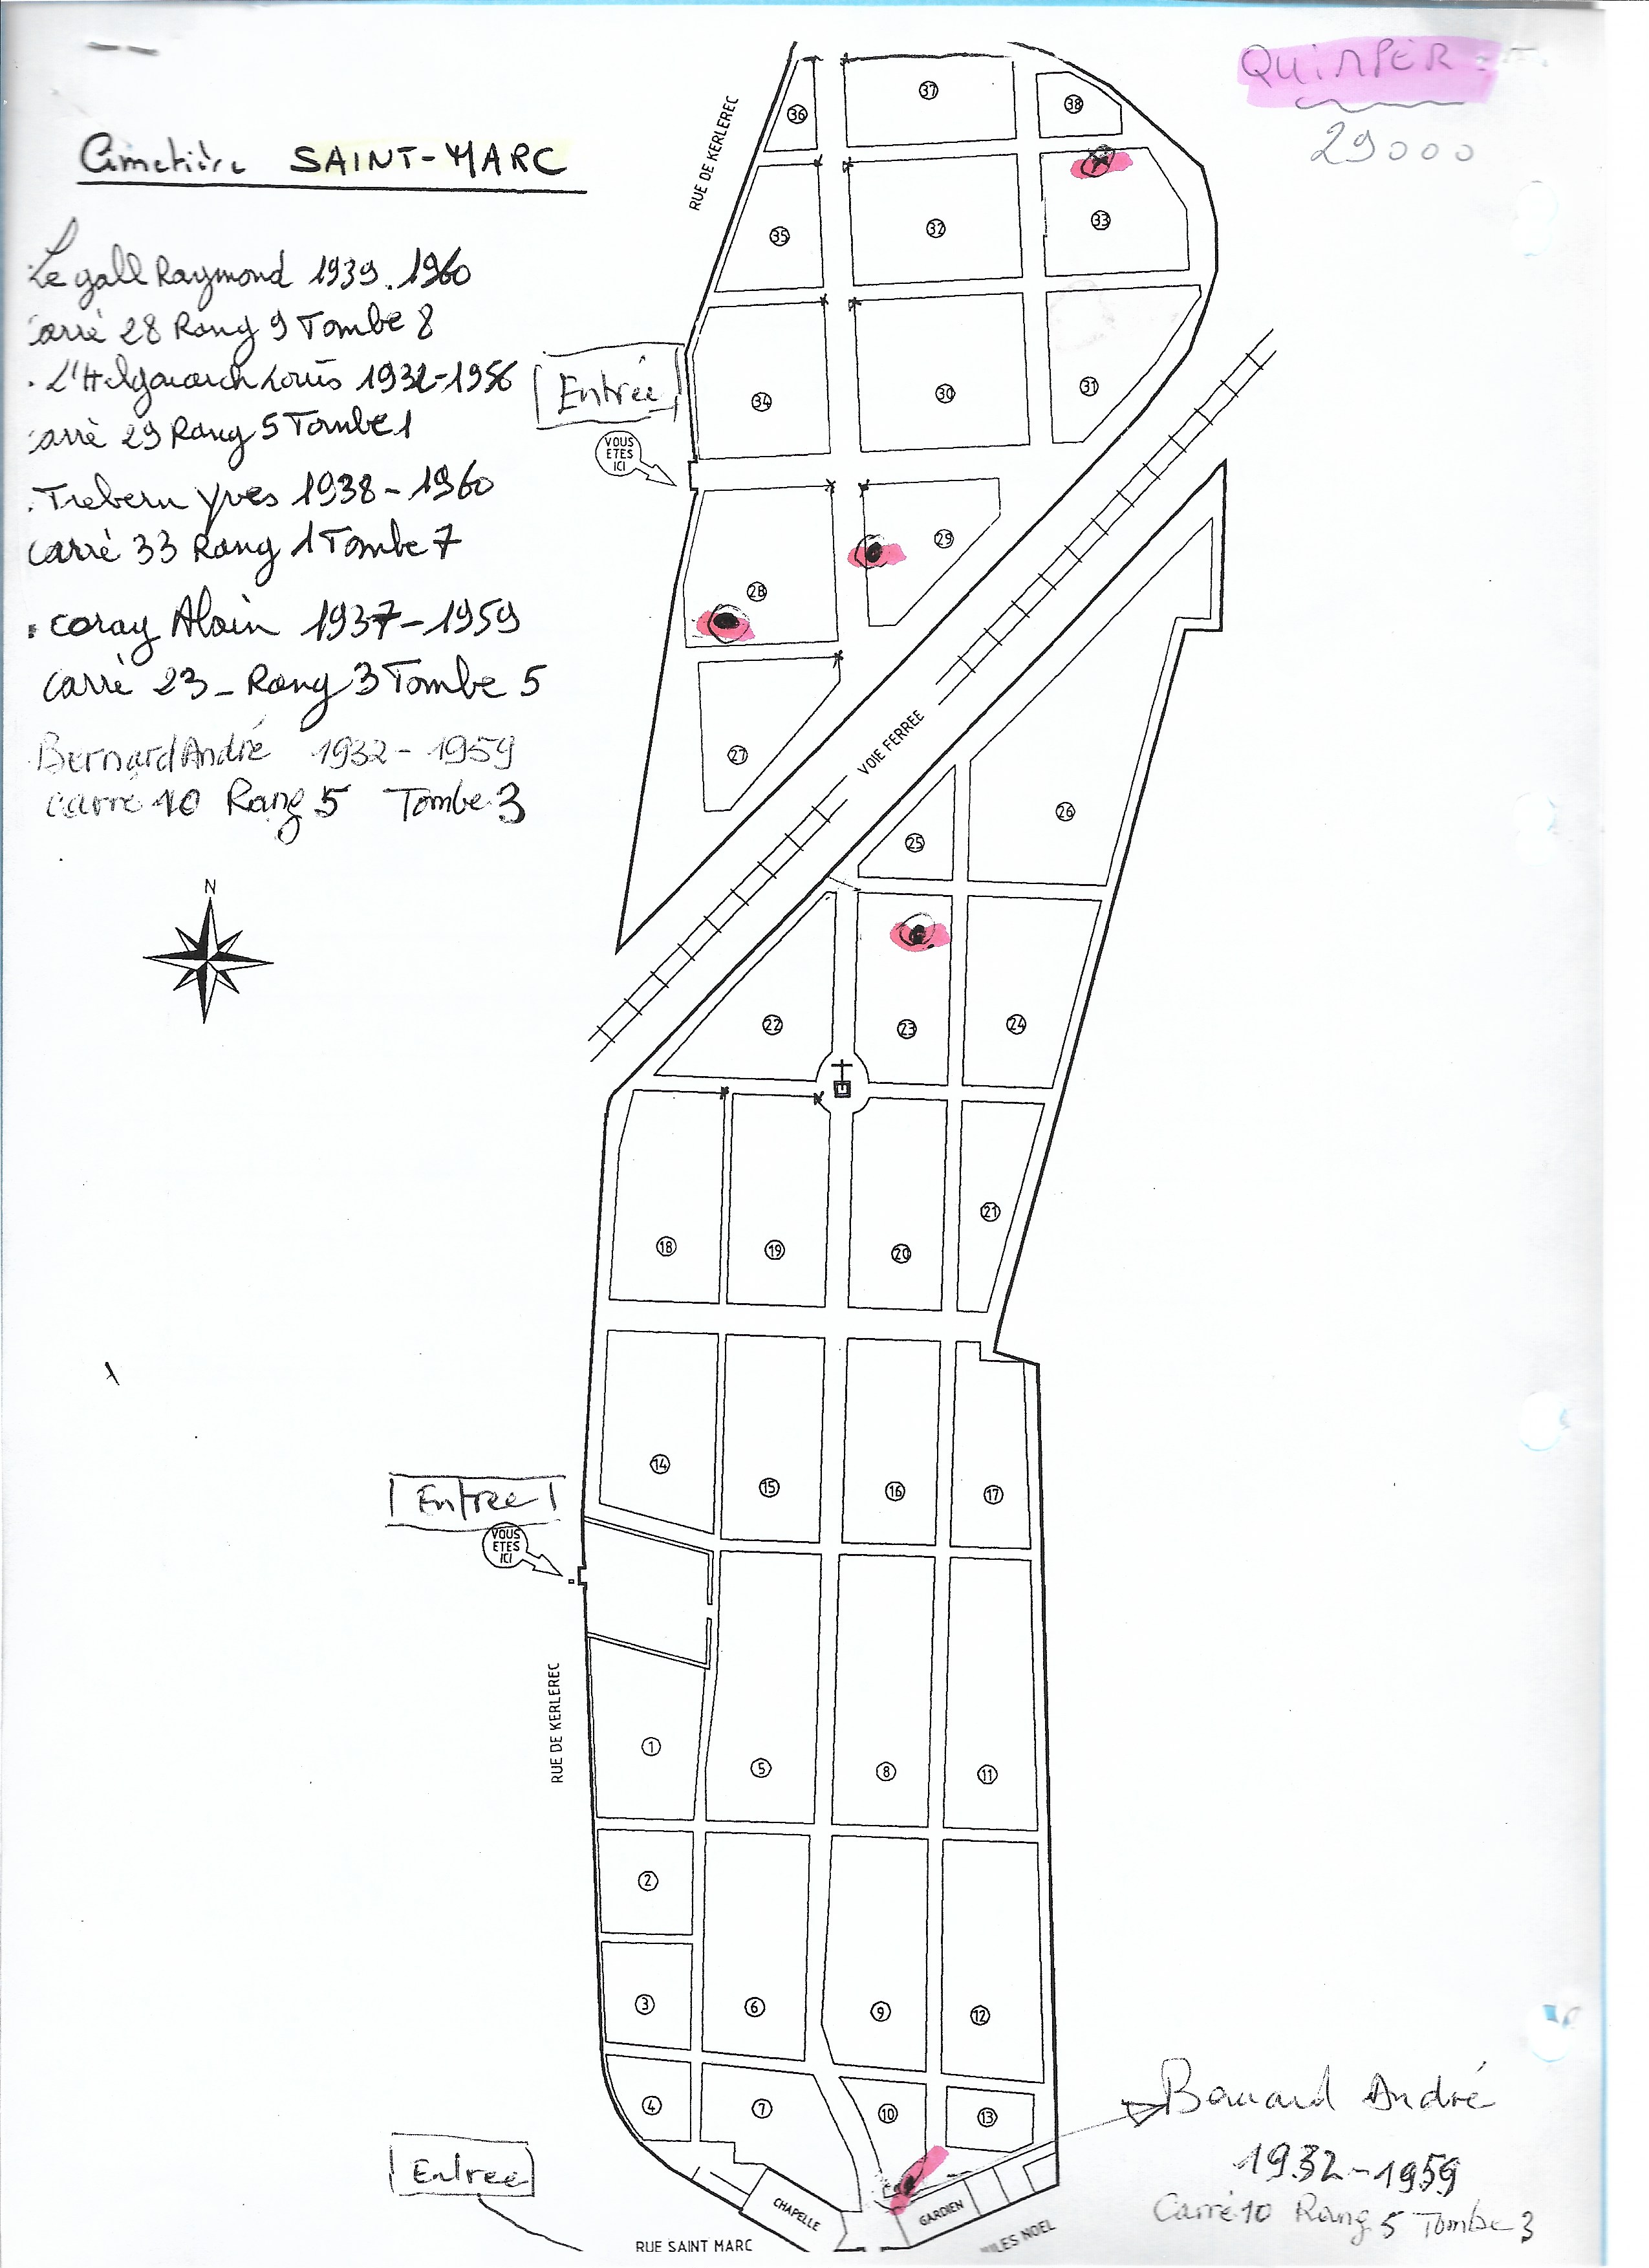 QUIMPER
29000
Cimetière SAINT-MARC
Le gall Raymond 1939.1960
carré 28 Rang 9 Tombe 8
. L'Helgouarch Louis 1932-1956
carré 29 Rang 5 Tombe 1
. Trebern Yves 1938-1960
carré 33 Rang 1 Tombe 7
. coray Alain 1937-1959
carré 23_ Rang 3 Tombe 5
Bernard André 1932-1959
carré 10 Rang 5 Tombe 3
N
RUE DE KERLEREC
36
37
38
35
32
33
Entrée
34
30
31
VOUS
ETES
ICI
28
29
27
VOIE FERREE
25
26
22
23
24
18
19
20
21
14
15
16
17
Entree
VOUS
ETES
ICI
RUE DE KERLEREC
1
5
8
11
2
3
6
9
12
4
7
10
13
Entree
CHAPELLE
GARDIEN
RUE SAINT MARC
NOEL
André
1932-1959
Carré 10 Rang 5 Tombe 3